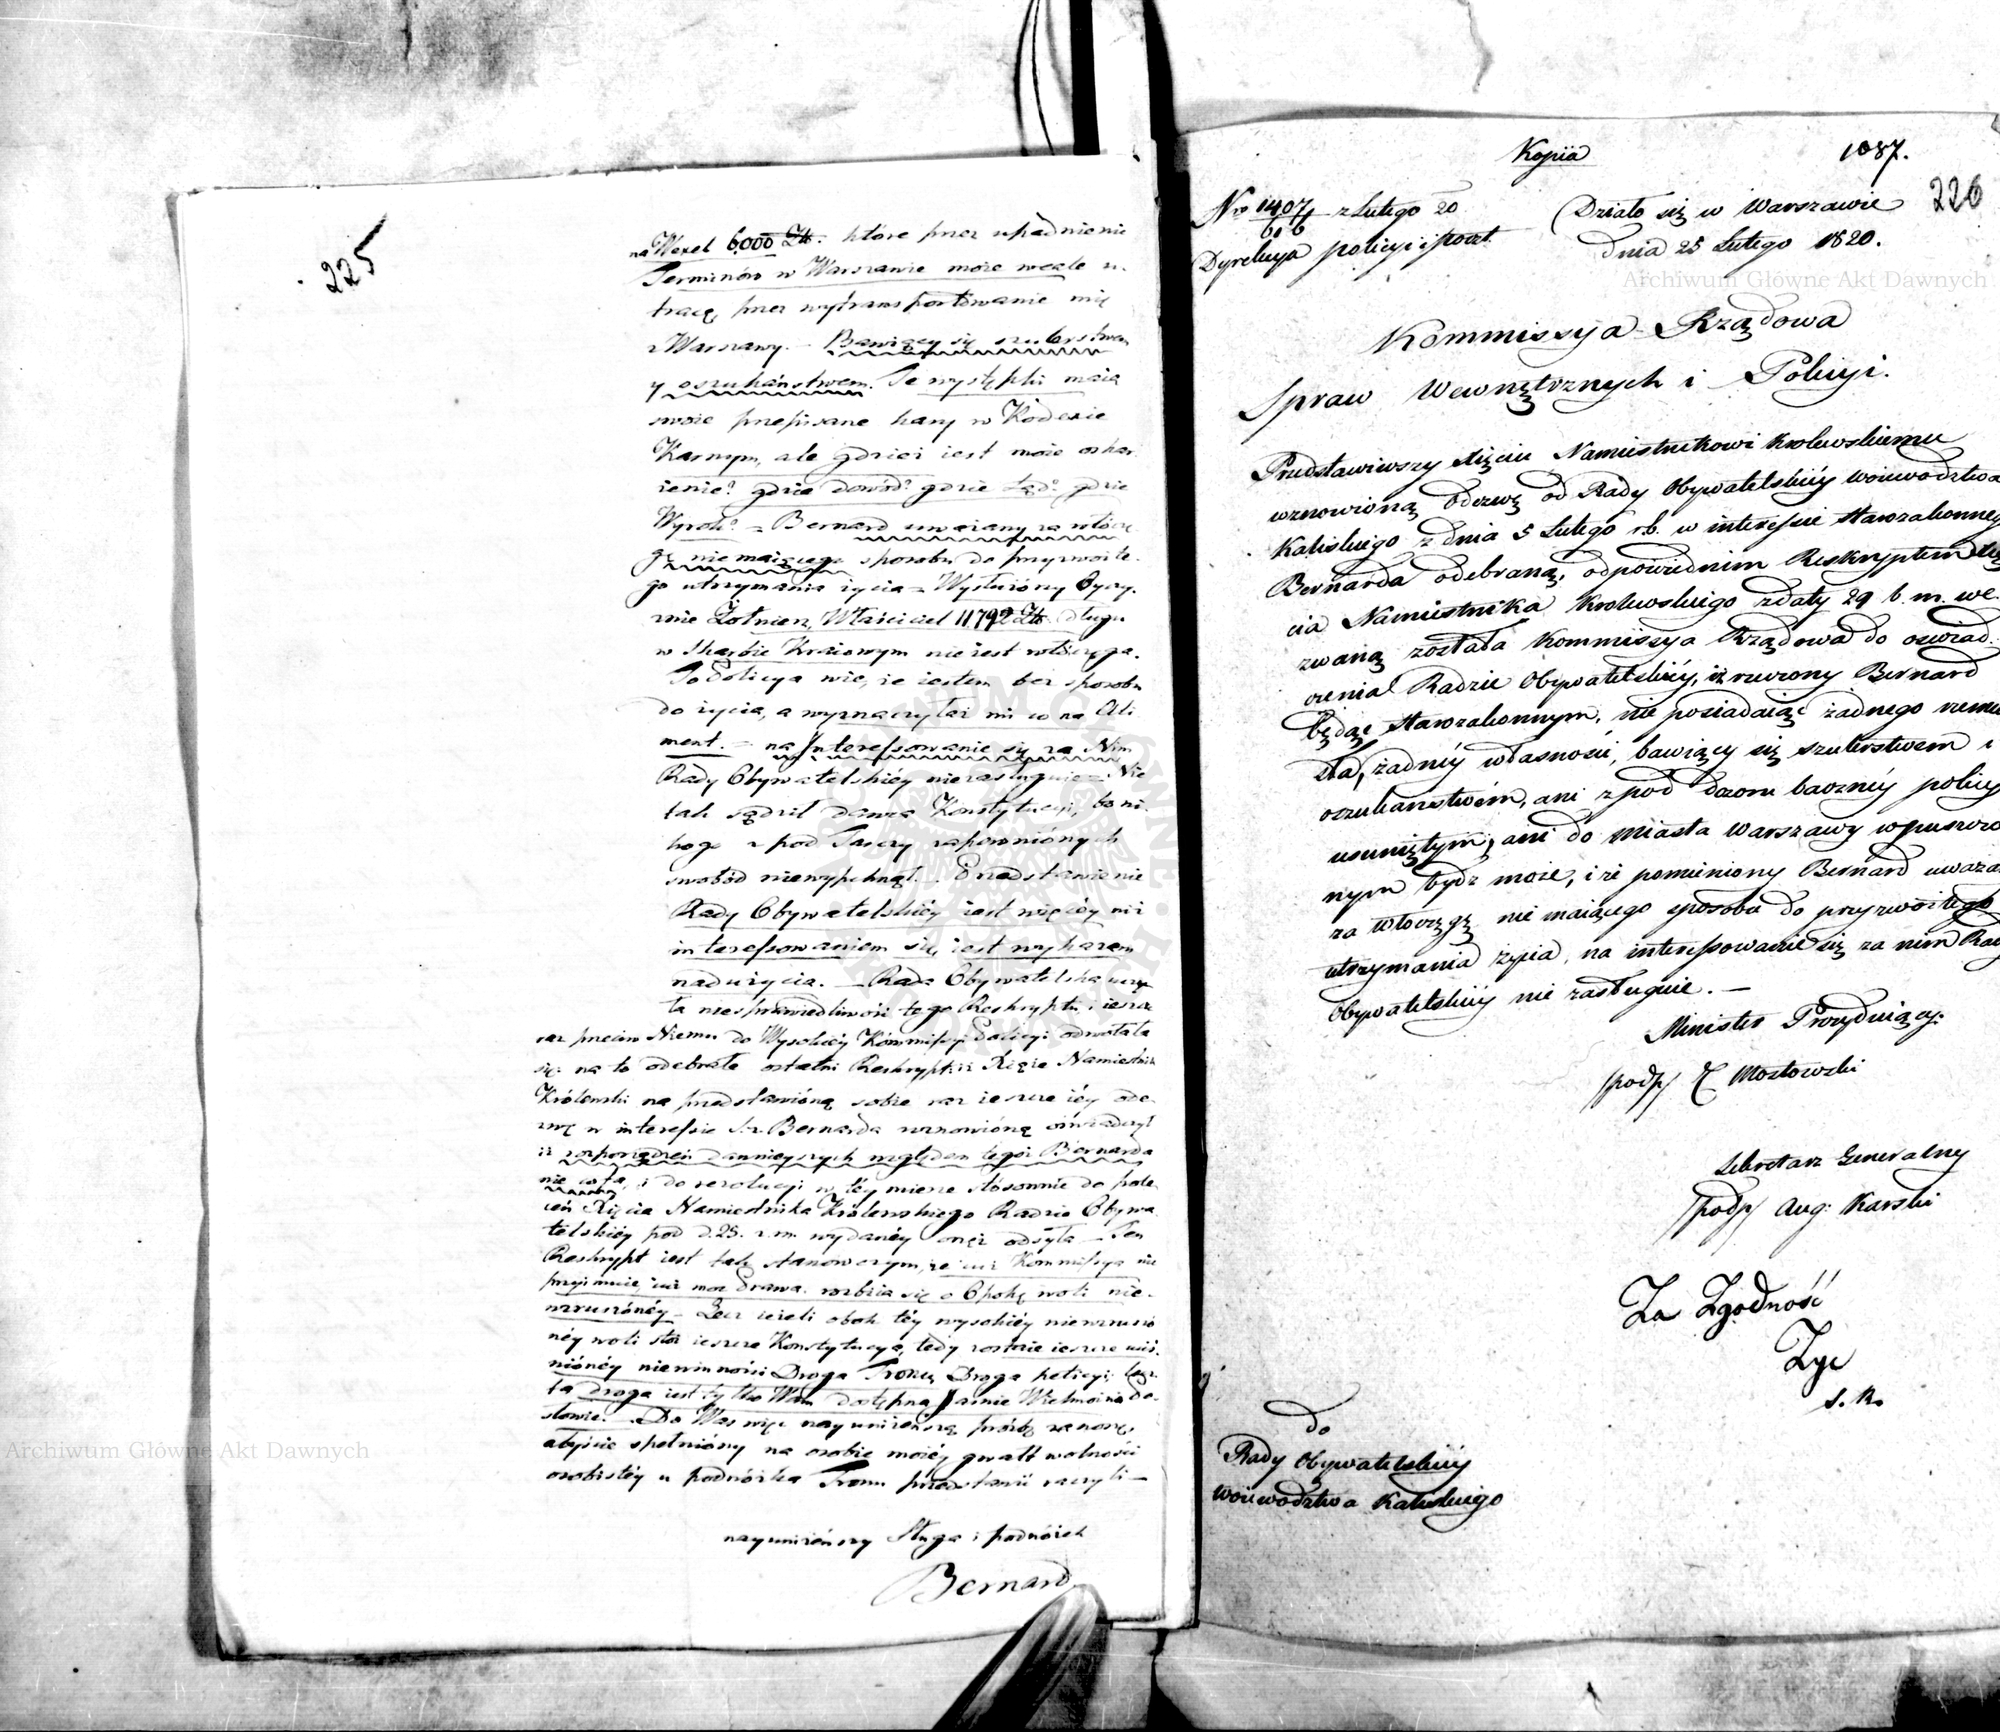 225
na Wexel 6000 Zł. które przez upadnienie
Terminów w Warszawie może wcale u-
tracę przez wytransportowanie mię
z Warszawy. – Bawiący się szulerstwem
y oszukaństwem. Te występki maią
swoie przepisane kary w Kodexie
Karnym, ale gdzież iest moie oskar-
żenie? gdzie dowód? gdzie Sąd? gdzie
Wyrok? – Bernard uważany za włóczę-
gę nie maiącego sposobu do przyzwoite-
go utrzymania życia – Wysłużony Oyczy-
znie Żołnierz, Właściciel 11792 Zł. długu
w Skarbie Kraiowym nie iest włóczęga.
Policya wie, że iestem bez sposobu
do życia, a wyznaczyłaż mi co na Ali-
ment. – na Interessowanie się za Nim
Rady Obywatelskiéy niezasługuie – Nie
tak sądził dawca Konstytucyi, bo ni-
kogo z pod Tarczy zapewnionych
swobód niewypchnął. – Przedstawienie
Rady Obywatelskiéy iest więcéy niż
interessowaniem się, iest wykazem
nadużycia. – Rada Obywatelska uczu-
ła niesprawiedliwość tego Reskryptu i ieszcze
raz przeciw Niemu do Wysokiéy Kommissyi Policyi odwołała
się na to odebrała ostatni Reskrypt iż Xiąże Namiestnik
Królewski na przedstawioną sobie raz ieszcze iéy ode-
zwę w interessie St. Bernarda wznowioną oświadczył
iż rozporządzeń dawnieyszych względem tegoż Bernarda
nie cofa, i do rezolucyi w téy mierze stósownie do pole-
ceń Xięcia Namiestnika Królewskiego Radzie Obywa-
telskiéy pod d. 25. z. m. wydanéy onęż odsyła – Ten
Reskrypt iest tak stanowczym, że iuż Kommissya nie
przyimuie, iuż moc Prawa rozbiia się o Opokę woli nie-
wzruszonéy – Lecz ieżeli obok téy wysokiéy niewzruszo-
néy woli stoi ieszcze Konstytucya, tedy zostaie ieszcze uciś-
nionéy niewinności Droga Tronu, Droga peticyi; lecz
ta droga iest tylko Wam dostępna Jaśnie Wielmożni Po-
słowie! – Do Was więc nayuniżeńszą prośbę zanoszę,
abyście spełniony na osobie moiéy gwałt wolności
osobistéy u podnóżka Tronu przedstawić raczyli –
nayuniżeńszy Sługa i podnóżek
Bernard
Kopia
1087.
226
Nro 1407/606 z Lutego 20
Działo się w Warszawie
Dyrekcya policyi i poczt.
dnia 25 Lutego 1820.
Kommissya Rządowa
Spraw Wewnętrznych i Policyi.
Przedstawiwszy Xięciu Namiestnikowi Krolewskiemu
wznowioną odezwę od Rady Obywatelskiéy Woiewodztwa
Kaliskiego z dnia 5 Lutego r.b. w interessie starozakonnego
Bernarda odebraną, odpowiednim Reskryptem Xię-
cia Namiestnika Krolewskiego z daty 29 b. m. we-
zwaną została Kommissya Rządowa do oświad-
czenia Radzie Obywatelskiéy, iż rzeczony Bernard
będąc starozakonnym, nie posiadaiąc żadnego rzemio
sła, żadnéy własności, bawiący się szulerstwem i
oszukanstwem, ani z pod dozoru baczney policyi
usuniętym, ani do miasta Warszawy wpuszczo
nym bydz może, i że pomieniony Bernard uważa
za włoczęgę nie maiącego sposobu do przyzwoitego
utrzymania życia, na interessowanie się za nim Rady
Obywatelskiéy nie zasługuie. –
Minister Prezyduiący:
/podp/ T Mostowski
Sekretarz Generalny
/podp/ Aug: Karski
Za Zgodność
Zyc
S. R.
do
Rady Obywatelskiéy
Woiewodztwa Kaliskiego
Archiwum Główne Akt Dawnych
Archiwum Główne Akt Dawnych